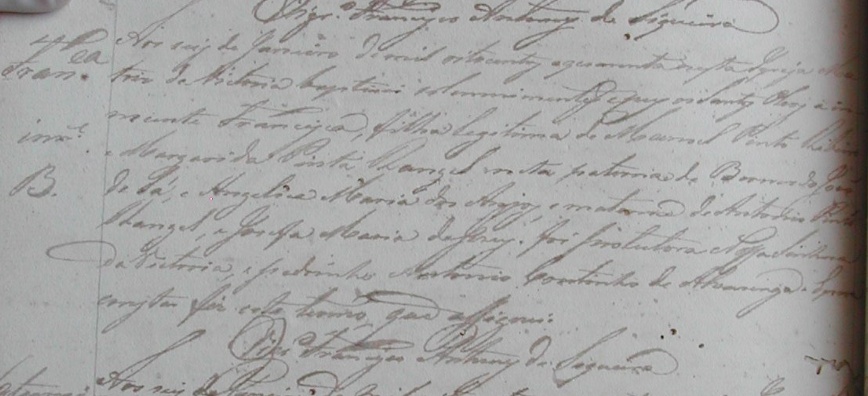 Vigr.º Francisco Antunes de Siqueira
Fran.ca
Aos seis de Janeiro de mil oitocentos e quarenta nesta Igreja Ma
triz da Victoria baptizei solemnimente e puz os Santos Oleos a in
nocente Francisca, filha legitima de Manoel Pinto
inn.e
e Margarida Pinta Rangel neta paterna de
B.
de Sá, e Angelica Maria dos Anjos, e materna de Antonio Pinto
Rangel, e Josefa Maria de Jesus: foi protectora Nossa Senhora
da Victoria, e padrinho Antonio Coutinho de Alvarenga. E para
constar fiz este termo, que assignei.
Vigr.º Francisco Antunes de Siqueira
Aos seis de Janeiro de mil